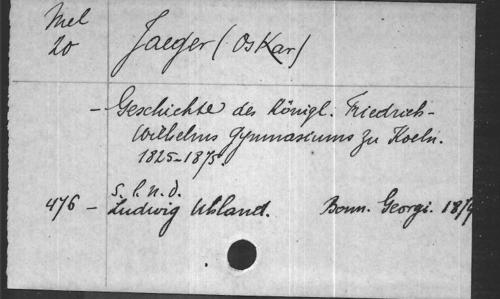 Mel
20
Jaeger (Oskar)
- Geschichte des Königl. Friedrich-
Wilhelms Gymnasiums zu Koeln.
1825-1875.
s. l. n. d.
476 - Ludwig Uhland. Bonn. Georgi.